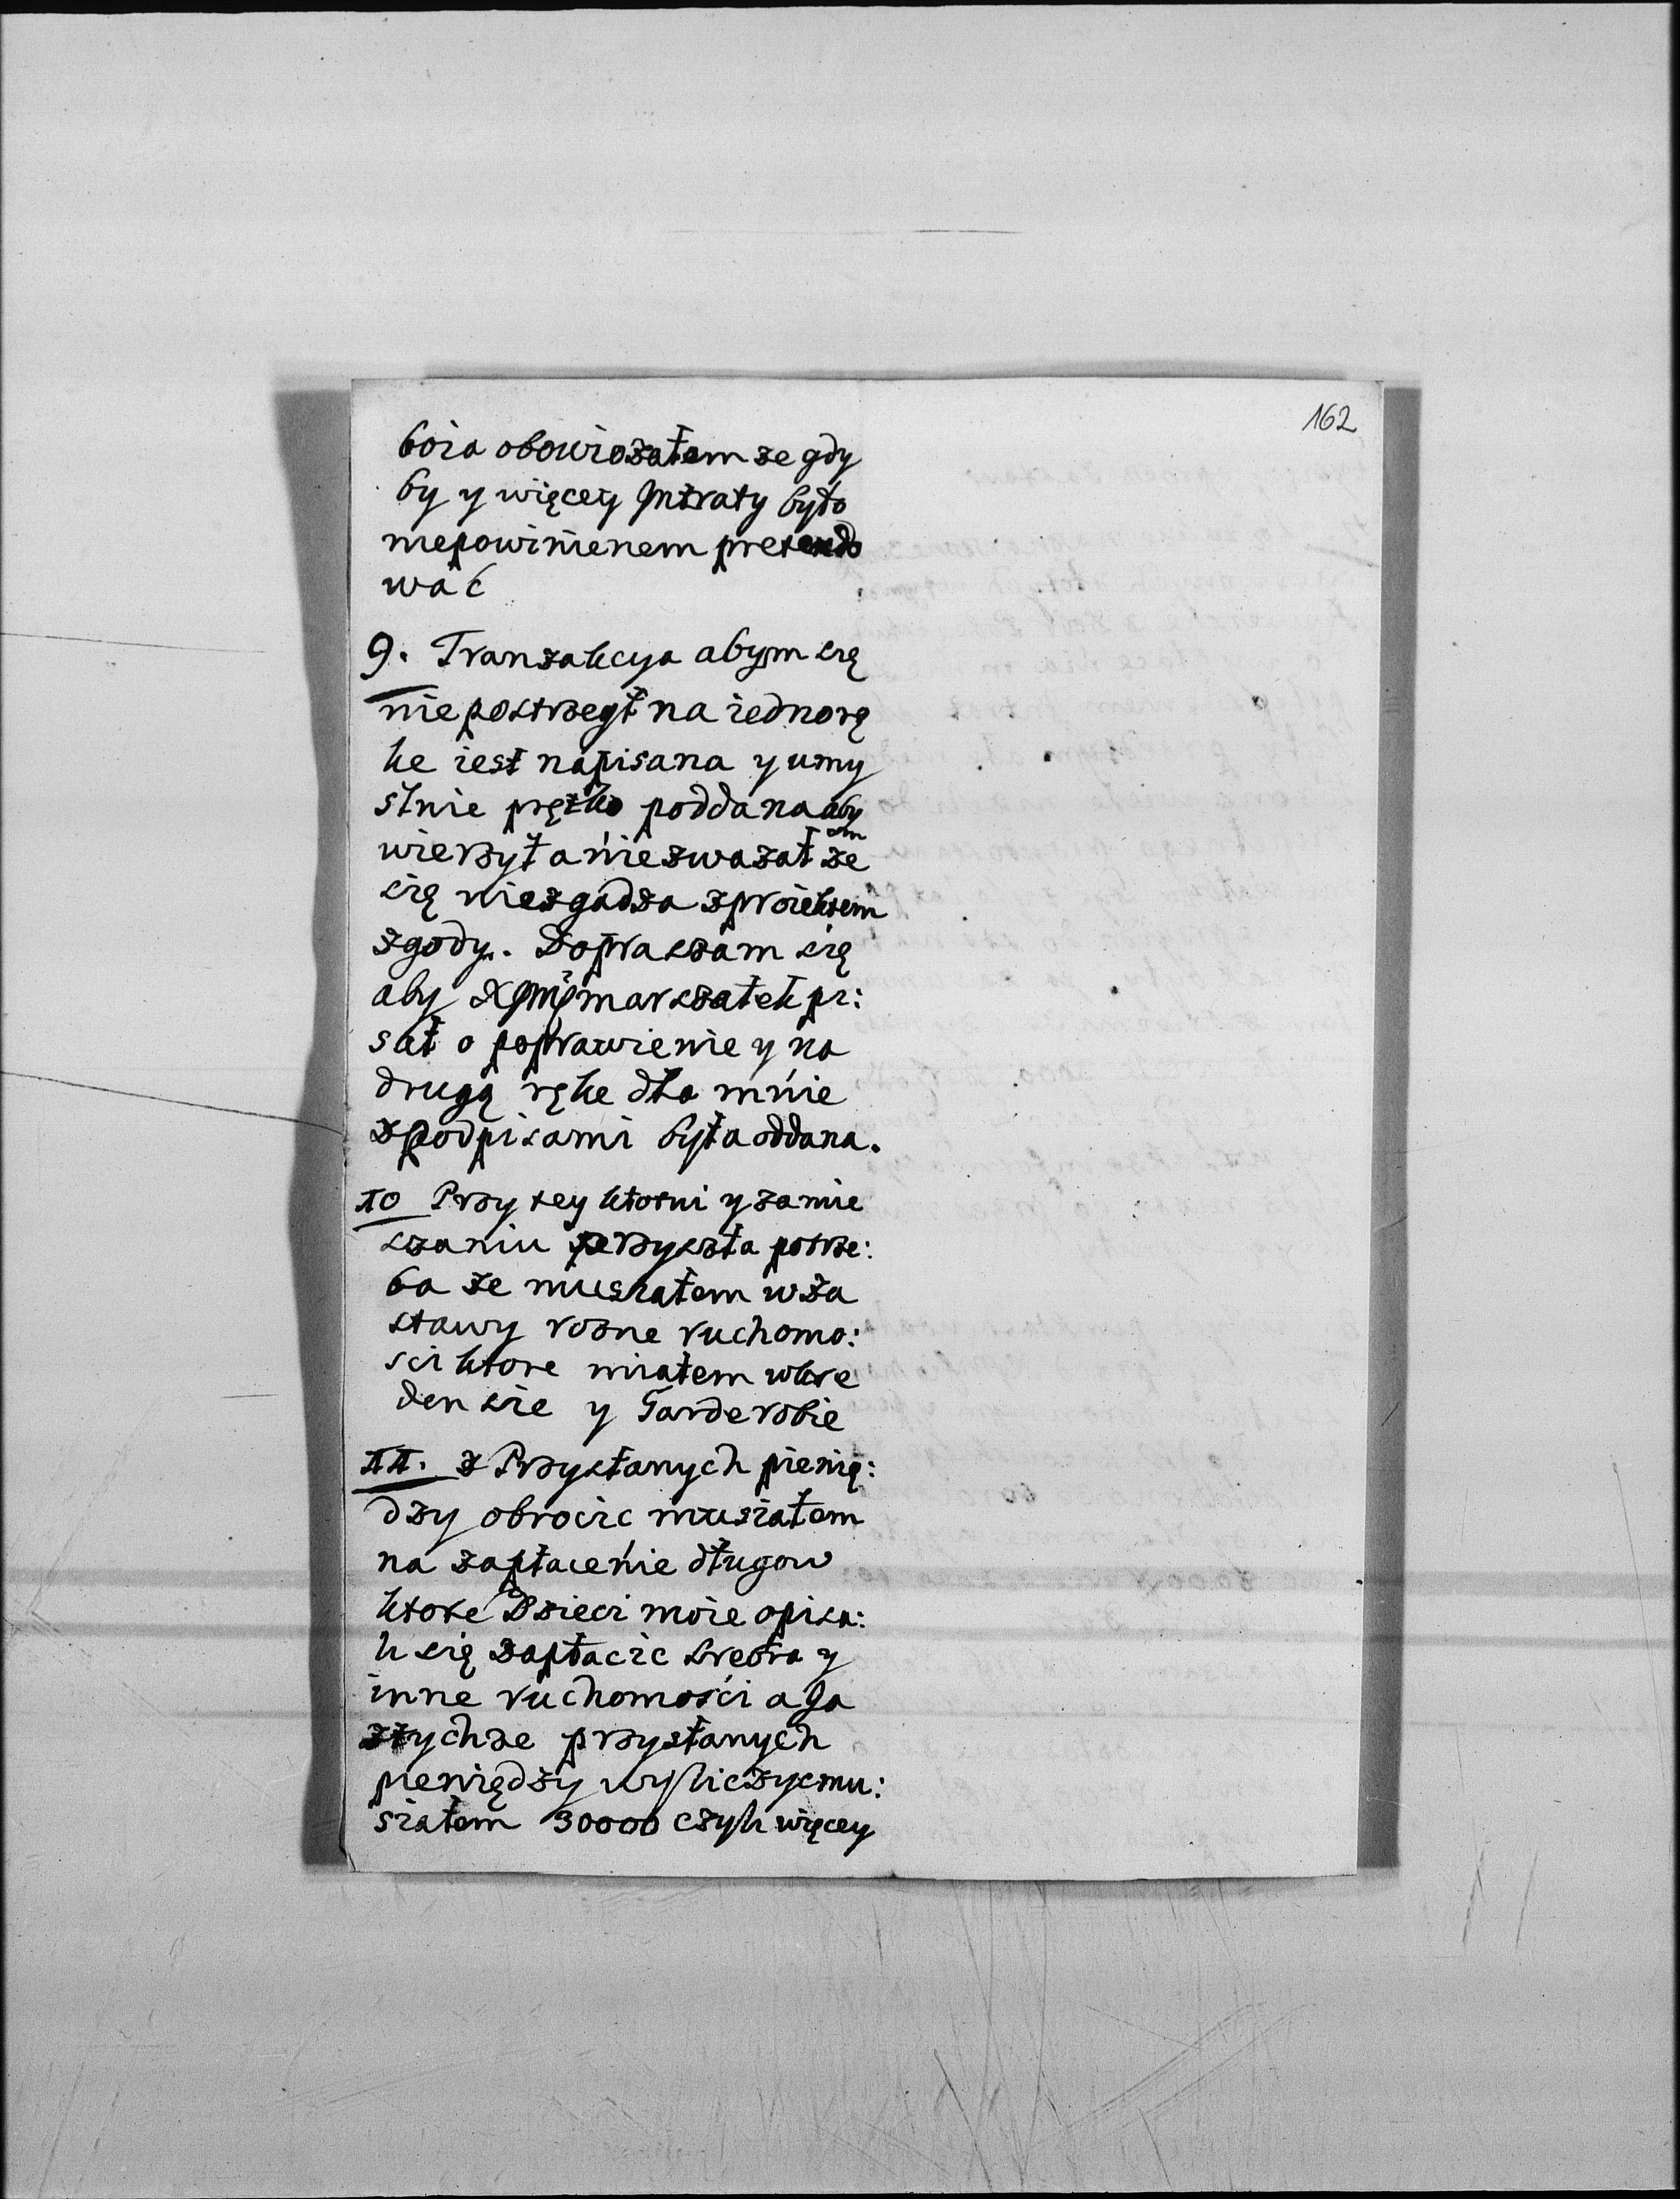 162
boia obowiązałem ze gdy
by y więcey Jntraty było
niepowinienem pretendo
wać
9. Tranzakcya abym się
nie postrzegł na iednorę
ke iest napisana y umy
slnie prętko poddana aby
wierzył a nie zwazał em ze
się niezgadza z proiektem
zgody. Dopraszam się
aby XJmć marszałek pi:
sał o poprawienie y na
drugą rękę dla mnie
z Podpisami była oddana.
10 Przy tey kłotni y zamie
szaniu przyszła potrze:
ba ze musiałem w za
stawy rozne ruchomo:
sci ktore miałem w kre
densie y Garderobie
11. z Przysłanych pienię:
dzy obrocic musiałem
na zapłacenie długow
ktore Dzieci moie opisa:
li się zapłacic srebra y
inne ruchomości a Ja
z tychze przysłanych
pieniędzy wyliczyc mu:
siałem 30000 czyli więcey